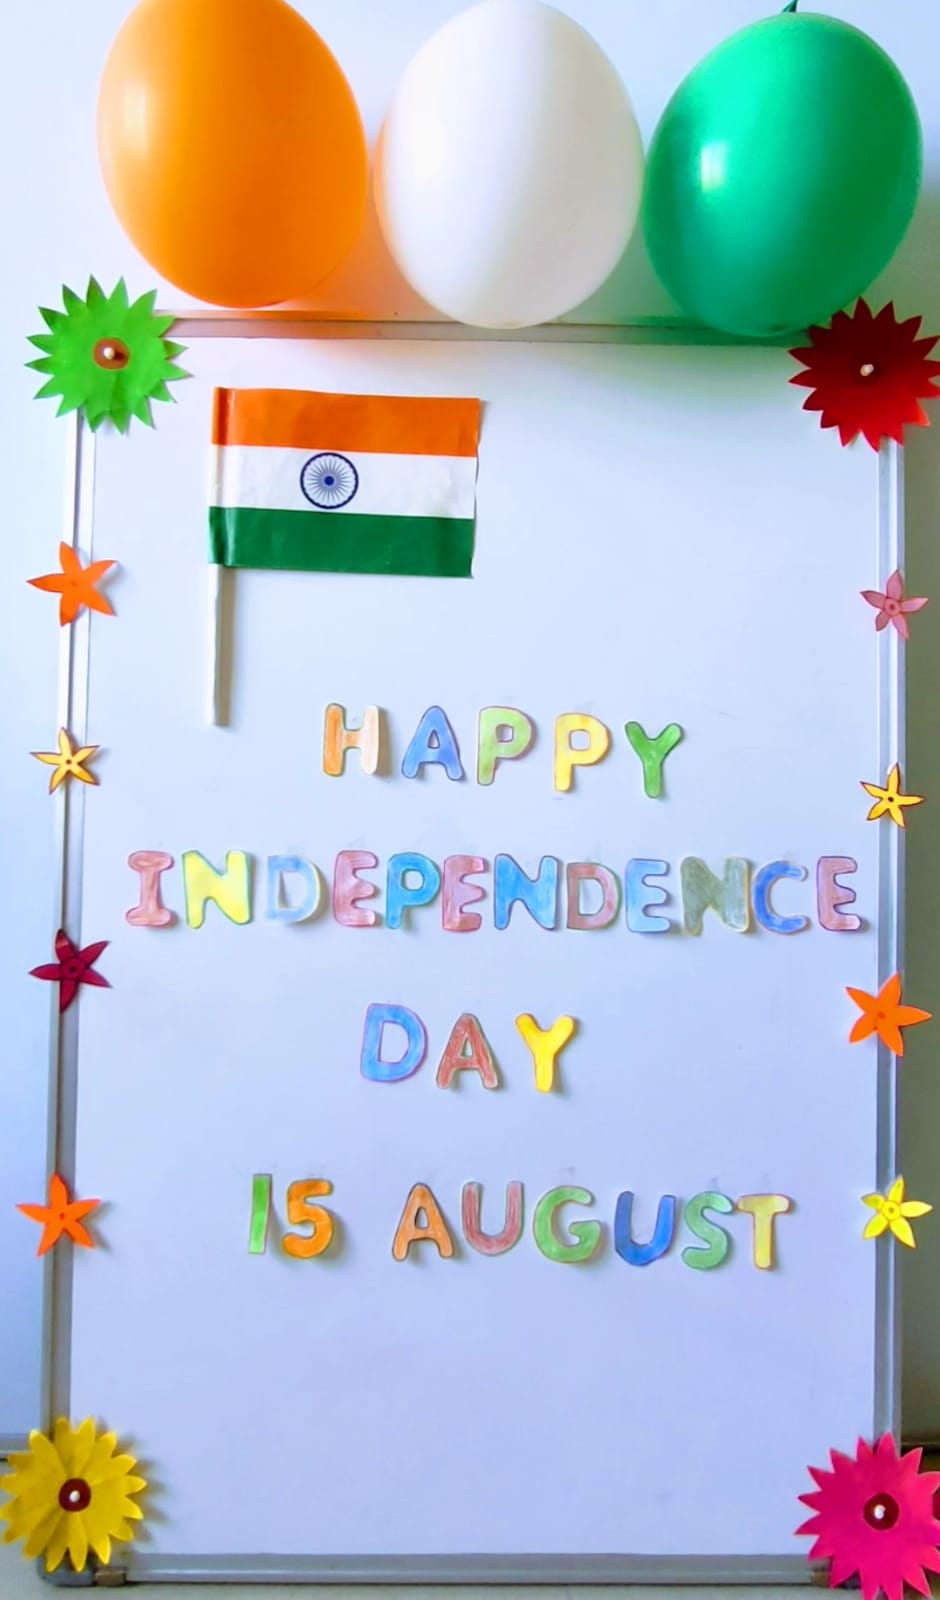 HAPPY
INDEPENDENCE
DAY
15 AUGUST